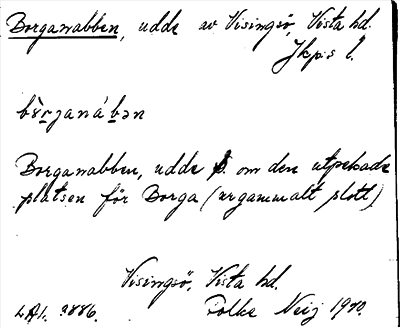 Borganabben, udde av Visingsö, Vista hd.
Jkps l.
bèrjaná bən
Borganabben, udde S. om den utpekade
platsen för Borga (urgammalt slott)
Visingsö, Vista hd.
L.A.I. 2886. Folke Neij 1920.